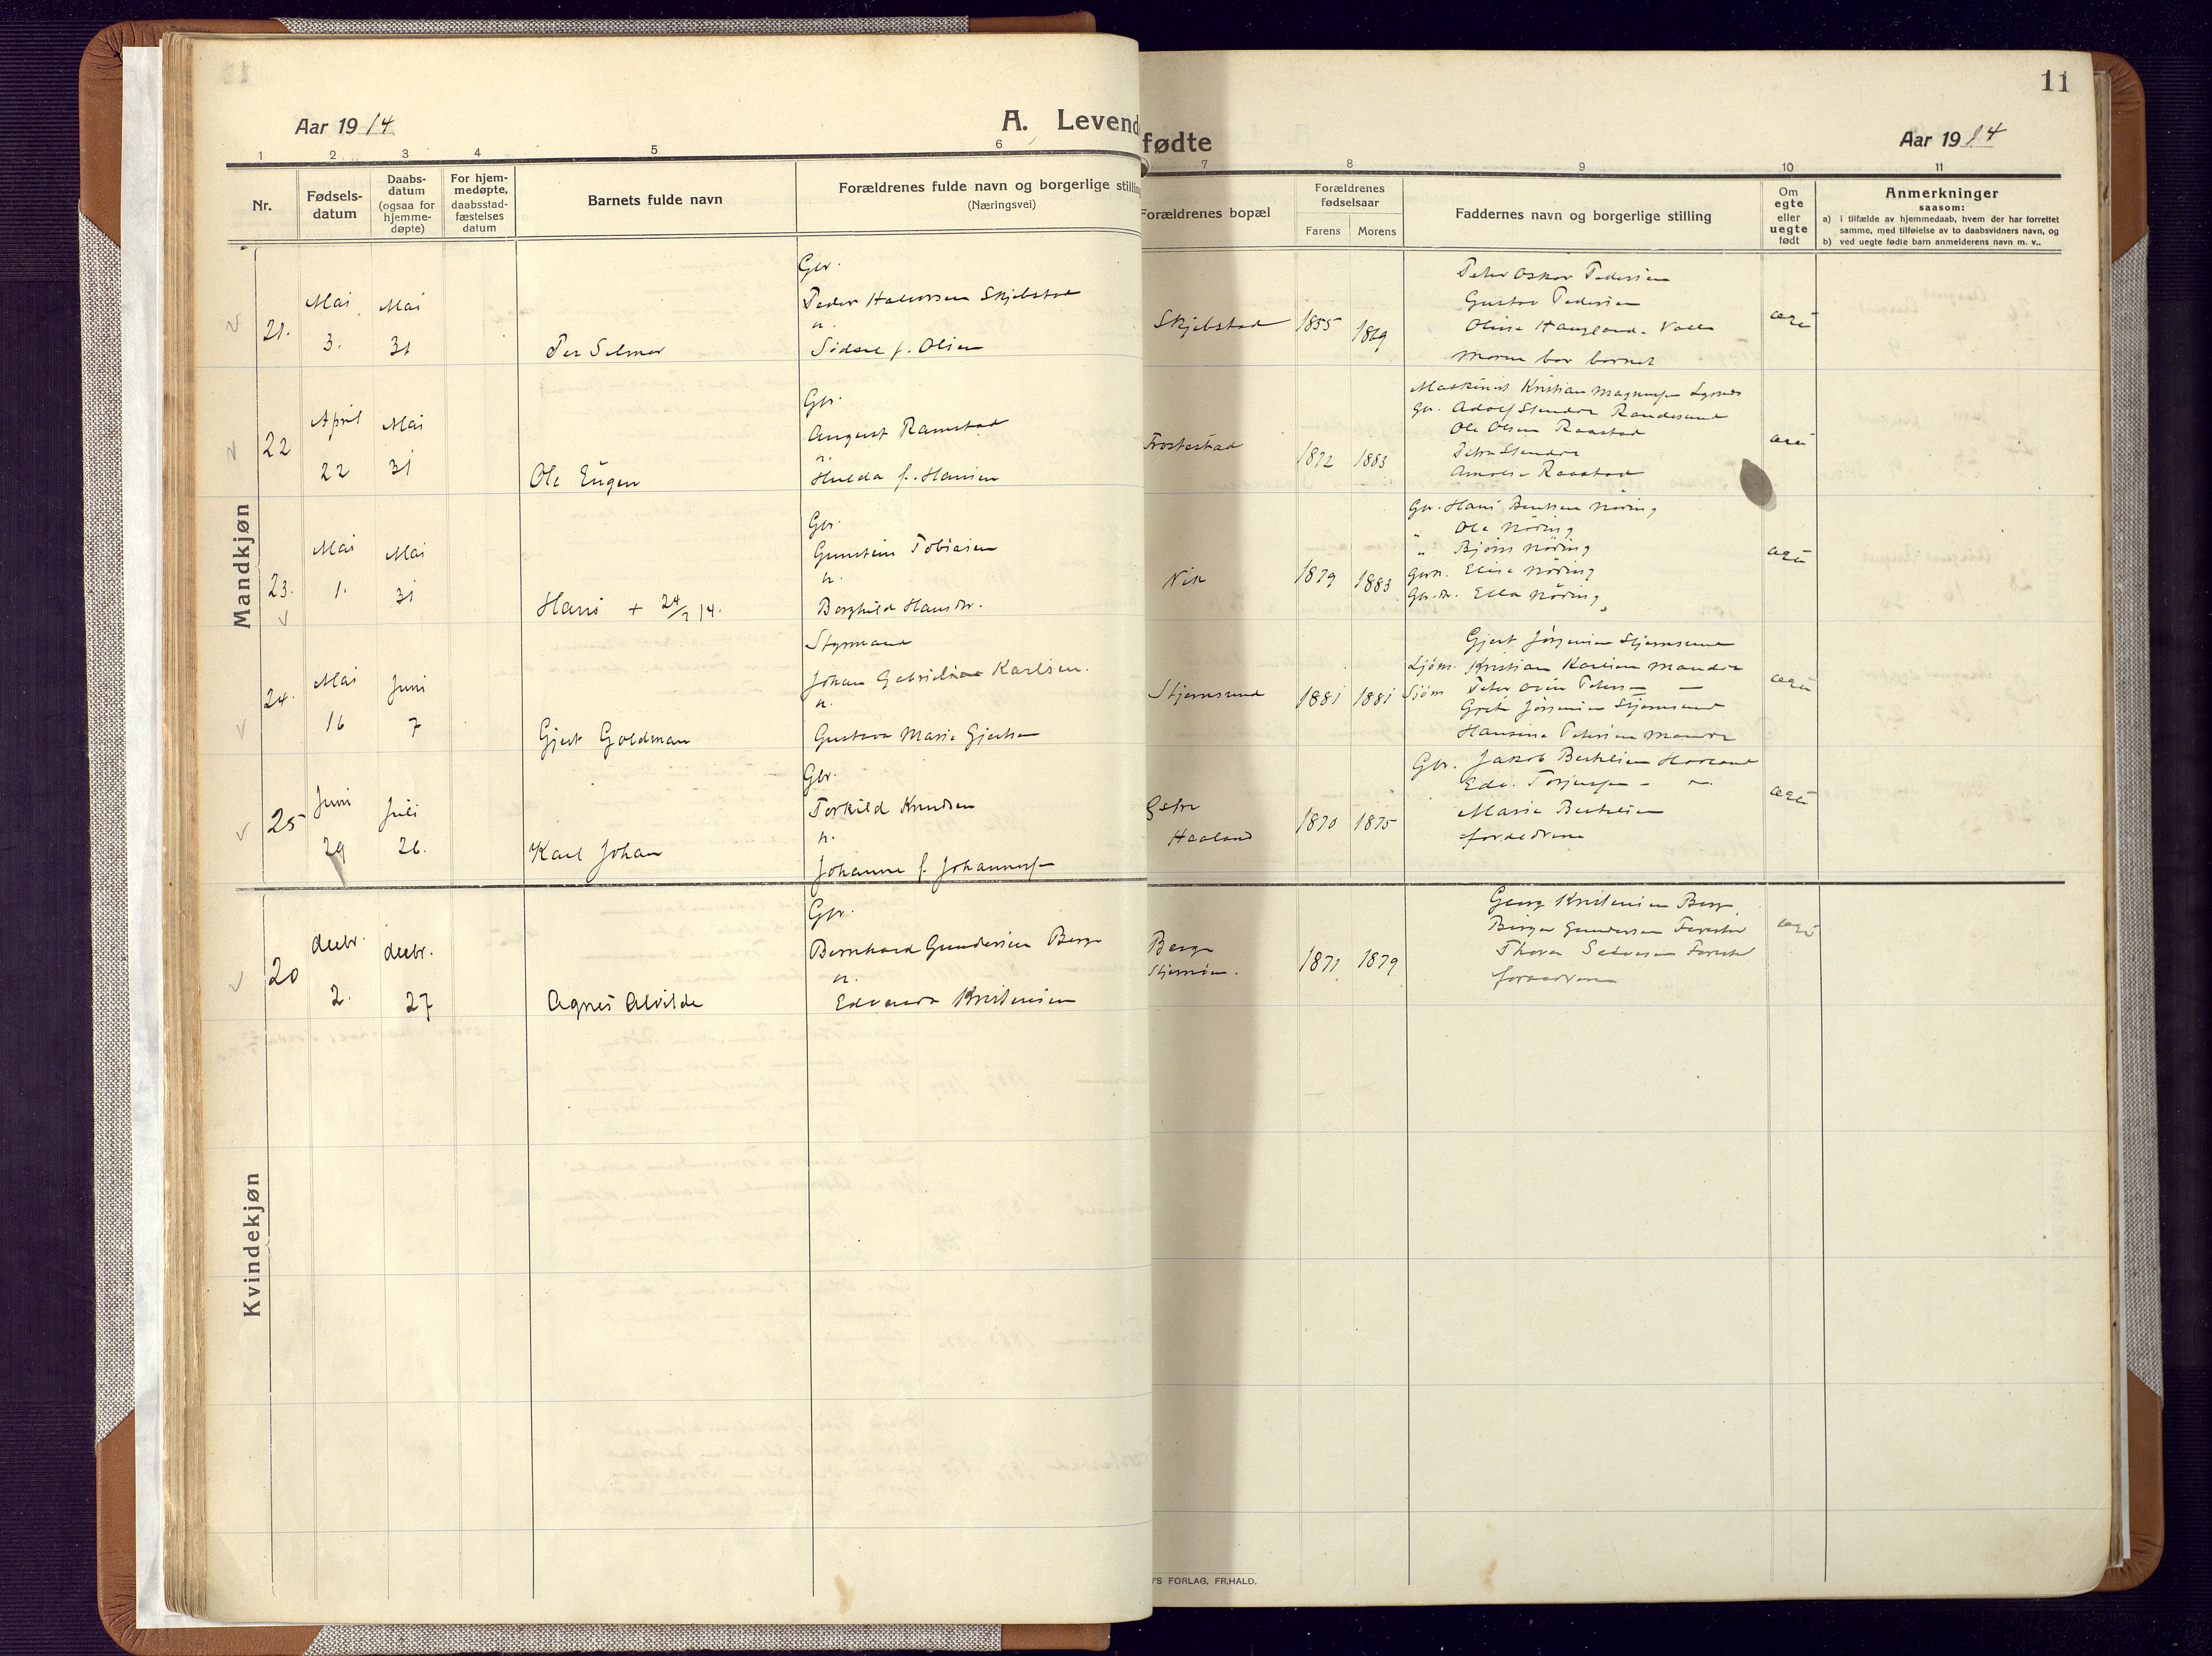 11
Aar 1914
A. Levend
fødte
Aar 1914
1 2 3 4 5 6 7 8 9 10 11
Nr.
Fødsels-
datum
Daabs-
datum
(ogsaa for
hjemme-
døpte)
For hjem-
medøpte,
daabsstad-
fæstelses
datum
Barnets fulde navn
Forældrenes fulde navn og borgerlige stilling
(Næringsvei)
Forældrenes bopæl
Forældrenes
fødselsaar
Farens Morens
Faddernes navn og borgerlige stilling
Om
egte
eller
uegte
født
Anmerkninger
saasom:
a) i tilfælde av hjemmedaab, hvem der har forrettet
samme, med tilføielse av to daabsvidners navn, og
b) ved uegte fødte barn anmelderens navn m. v..
Mandkjøn
21.
Mai
3.
Mai
31
Per Selmer
Gbr.
Peder Halvorsen Skjelstad
Sidsel f. Olsen
Skjelstad
1855 1869
Peter Oskar Pedersen
Gustav Pedersen
Moren bar barnet
22
April
22
Mai
31
Ole Eugen
Gbr.
August Ramstad
Hulda f. Hansen
Trostestad
1872 1883
Maskinist Kristian
Gbr. Adolf Randesund
Ole Olsen Raastad
23.
Mai
1.
Mai
31
Hans + 24/7 14.
Gbr.
Gunstein Tobiasen
Borghild Hansdr.
1879 1883
Gbr. Hans Nöring
" Ole Nöring
" Björn Nöring
Elise Nöring
Ella Nöring
24.
Mai
16
Juni
7
Gjert Goldman
Styrmand
Johan Gabriel Karlsen.
Gustava Marie Gjertsen
Stjernsund
1881 1881
Gjert Jörgensen Stjernsund
Kristian Karlsen Mandal
Sjöm.
Jörgensen Stjernsund
Hansine Petersen Mandal
25
Juni
29
Juli
26.
Karl Johan
Gbr.
Torkild Knudsen
Johanne f. Johannesen
Haaland
1870 1875
Gbr. Jakob Bertelsen Haaland
Marie Bertelsen
forældrene
Kvindekjøn
20
decbr.
2.
decbr.
27
Agnes Alvilde
Gbr.
Bernhard Gundersen Berge
Kristensen
Berge
1871 1879
Georg Kristensen Berge
Birger Gundersen
forældrene
'S FORLAG, FR.HALD.